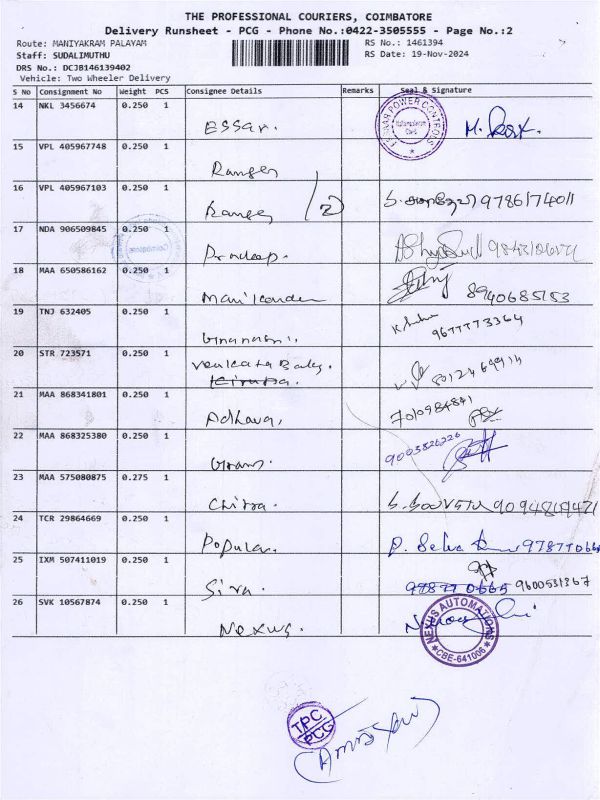 THE PROFESSIONAL COURIERS, COIMBATORE
Delivery Runsheet - PCG - Phone No.:0422-3505555 - Page No.:2
Route: MANIYAKRAM PALAYAM RS No.: 1461394
Staff: SUDALIMUTHU RS Date: 19-Nov-2024
DRS No.: DCJB146139402
Vehicle: Two Wheeler Delivery
S No Consignment No Weight PCS Consignee Details Remarks Seal & Signature
14 NKL 3456674 0.250 1
Essar. POWER CONTROLS
15 VPL 405967748 0.250 1
Ranger
16 VPL 405967103 0.250 1
Ranger 2 9786174011
17 NDA 906509845 0.250 1
Pradeep.
18 MAA 650586162 0.250 1
Manikandan 8940685153
19 TNJ 632405 0.250 1
9677773364
20 STR 723571 0.250 1
Venkata 8012469914
21 MAA 868341801 0.250 1
Adhava. 7010984841
22 MAA 868325380 0.250 1
9003826226
23 MAA 575080875 0.275 1
Chitra.
24 TCR 29864669 0.250 1
Popular.
25 IXM 507411019 0.250 1
Siva. 9600531367
26 SVK 10567874 0.250 1
Nexus. NEXUS AUTOMATIONS CBE-641006
TPC
PCG